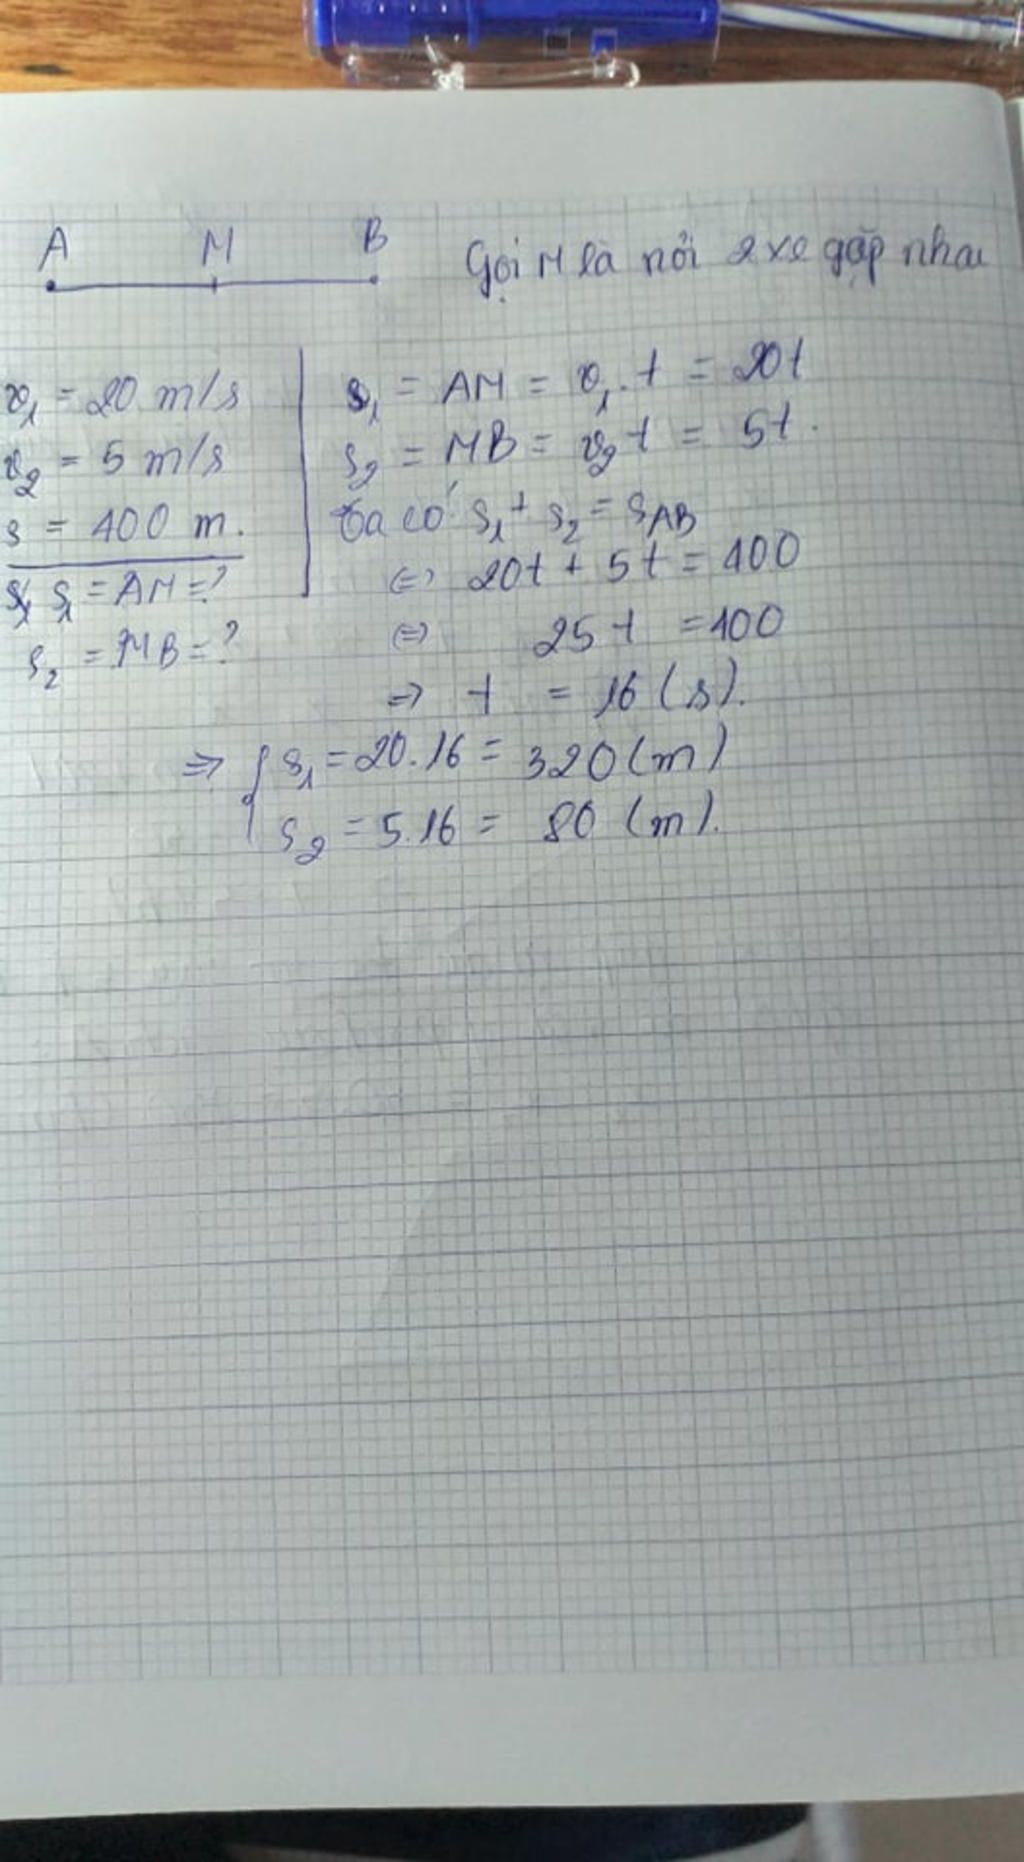 A M B
Gọi M là nơi 2 xe gặp nhau
v₁ = 20 m/s
v₂ = 5 m/s
s = 400 m.
s₁ = AM = ?
s₂ = MB = ?
s₁ = AM = v₁.t = 20t
s₂ = MB = v₂t = 5t.
Ta có s₁ + s₂ = sAB
<=> 20t + 5t = 400
<=> 25t = 400
=> t = 16 (s).
=> { s₁ = 20.16 = 320 (m)
s₂ = 5.16 = 80 (m).